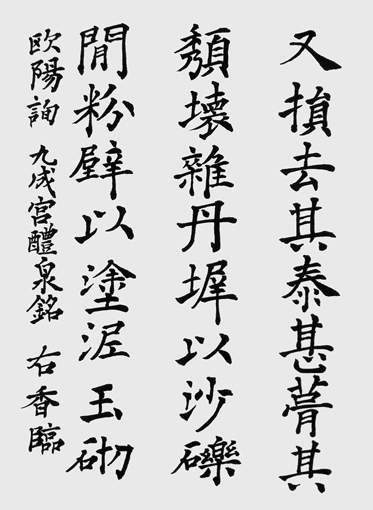 又損去其泰甚葺其
頹壞雜丹墀以沙礫
間粉壁以塗泥玉砌
欧陽詢 九成宮醴泉銘 右香臨